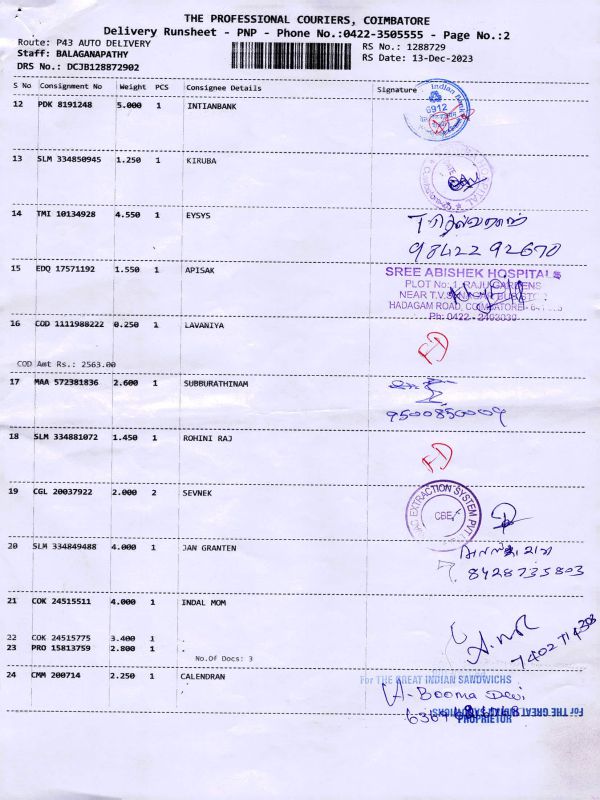 THE PROFESSIONAL COURIERS, COIMBATORE
Delivery Runsheet - PNP - Phone No.:0422-3505555 - Page No.:2
Route: P43 AUTO DELIVERY
RS No.: 1288729
Staff: BALAGANAPATHY
RS Date: 13-Dec-2023
DRS No.: DCJB128872902
S No Consignment No Weight PCS Consignee Details Signature
12 PDK 8191248 5.000 1 INTIANBANK
Indian Bank
6912
13 SLM 334850945 1.250 1 KIRUBA
HOSPITAL
14 TMI 10134928 4.550 1 EYSYS
98422 92670
15 EDQ 17571192 1.550 1 APISAK
SREE ABISHEK HOSPITALS
PLOT No: 1, RAJU GARDENS
NEAR T.V.S. NAGAR BUS STOP
HADAGAM ROAD, COIMBATORE
Ph: 0422 - 2463030
16 COD 1111988222 0.250 1 LAVANIYA
FD
COD Amt Rs.: 2563.00
17 MAA 572381836 2.600 1 SUBBURATHINAM
9500850009
18 SLM 334881072 1.450 1 ROHINI RAJ
FD
19 CGL 20037922 2.000 2 SEVNEK
EXTRACTION SYSTEM PVT
CBE
20 SLM 334849488 4.000 1 JAN GRANTEN
8428735803
21 COK 24515511 4.000 1 INDAL MOM
22 COK 24515775 3.400 1
23 PRO 15813759 2.800 1
No.Of Docs: 3
24 CMM 200714 2.250 1 CALENDRAN
For THE GREAT INDIAN SANDWICHS
A. Booma Devi
For THE GREAT
PROPRIETOR